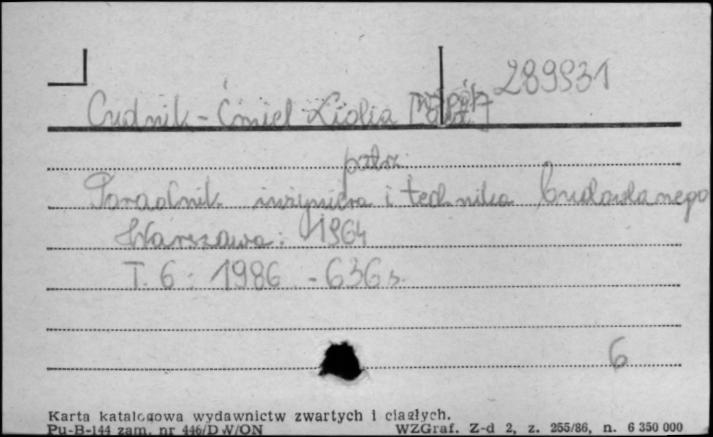 289931
Cudnik-Ćmiel Lidia [Współ]
patrz:
Poradnik inżyniera i technika budowlanego
Warszawa: 1964
T. 6: 1986. - 636 s.
6
Karta katalogowa wydawnictw zwartych i ciągłych.
Pu-B-144 zam. nr 446/DW/ON WZGraf. Z-d 2, z. 255/86, n. 6 350 000